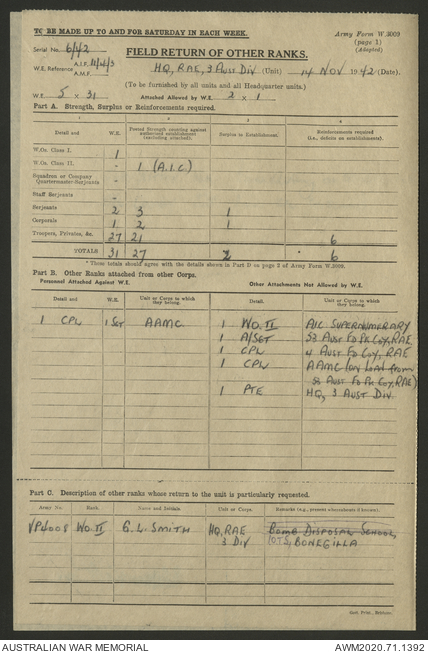 TO BE MADE UP TO AND FOR SATURDAY IN EACH WEEK.
Army Form W.3009
(page 1)
(Adapted)
Serial No. 6/42
FIELD RETURN OF OTHER RANKS.
W.E. Reference A.I.F. 11/4/3
A.M.F.
HQ, RAE, 3 AUST DIV (Unit) 14 NOV 1942 (Date).
(To be furnished by all units and all Headquarter units.)
W.E. 5 x 31 Attached Allowed by W.E. 2 x 1
Part A. Strength, Surplus or Reinforcements required.
1 2 3 4 5
Detail and W.E. Posted Strength counting against authorised establishment (excluding attached). Surplus to Establishment. Reinforcements required (i.e., deficits on establishments).
W.Os. Class I. 1
W.Os. Class II. - 1 (A.I.C)
Squadron or Company Quartermaster-Serjeants -
Staff Serjeants -
Serjeants 2 3 1
Corporals 1 2 1
Troopers, Privates, &c. 27 21 6
TOTALS 31 27 2 * 6
* These totals should agree with the details shown in Part D on page 2 of Army Form W.3009.
Part B. Other Ranks attached from other Corps.
Personnel Attached Against W.E. Other Attachments Not Allowed by W.E.
Detail and W.E. Unit or Corps to which they belong. Detail. Unit or Corps to which they belong.
1 CPL 1 SGT AAMC 1 WO. II AIC SUPERNUMERARY
1 A/SGT 53 AUST FD PK COY, RAE
1 CPL 4 AUST FD COY, RAE
1 CPL AAMC (ON LOAN from
53 AUST FD PK COY, RAE)
1 PTE HQ, 3 AUST DIV.
Part C. Description of other ranks whose return to the unit is particularly requested.
Army No. Rank. Name and Initials. Unit or Corps. Remarks (e.g., present whereabouts if known).
VP4008 WO. II G. L. SMITH HQ, RAE BOMB DISPOSAL SCHOOL,
3 DIV IOTS, BONEGILLA
Govt. Print., Brisbane.
AUSTRALIAN WAR MEMORIAL
AWM2020.71.1392